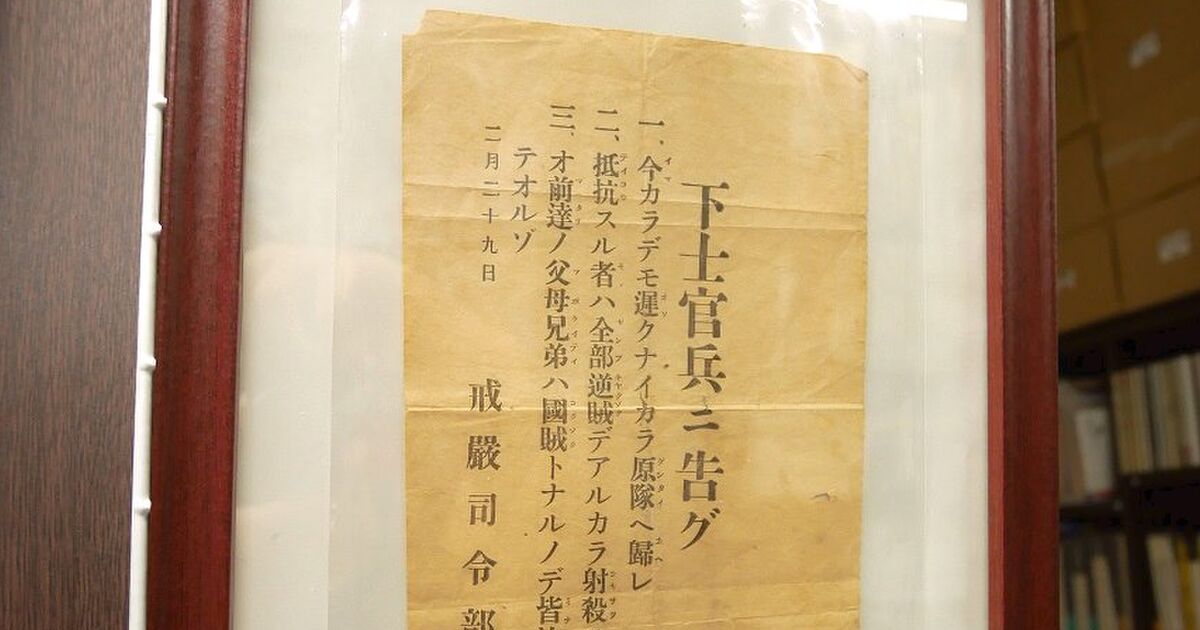 下士官兵ニ告グ
一、今カラデモ遲クナイカラ原隊ヘ歸レ
二、抵抗スル者ハ全部逆賊デアルカラ射殺
三、オ前達ノ父母兄弟ハ國賊トナルノデ皆
テオルゾ
二月二十九日
戒嚴司令部